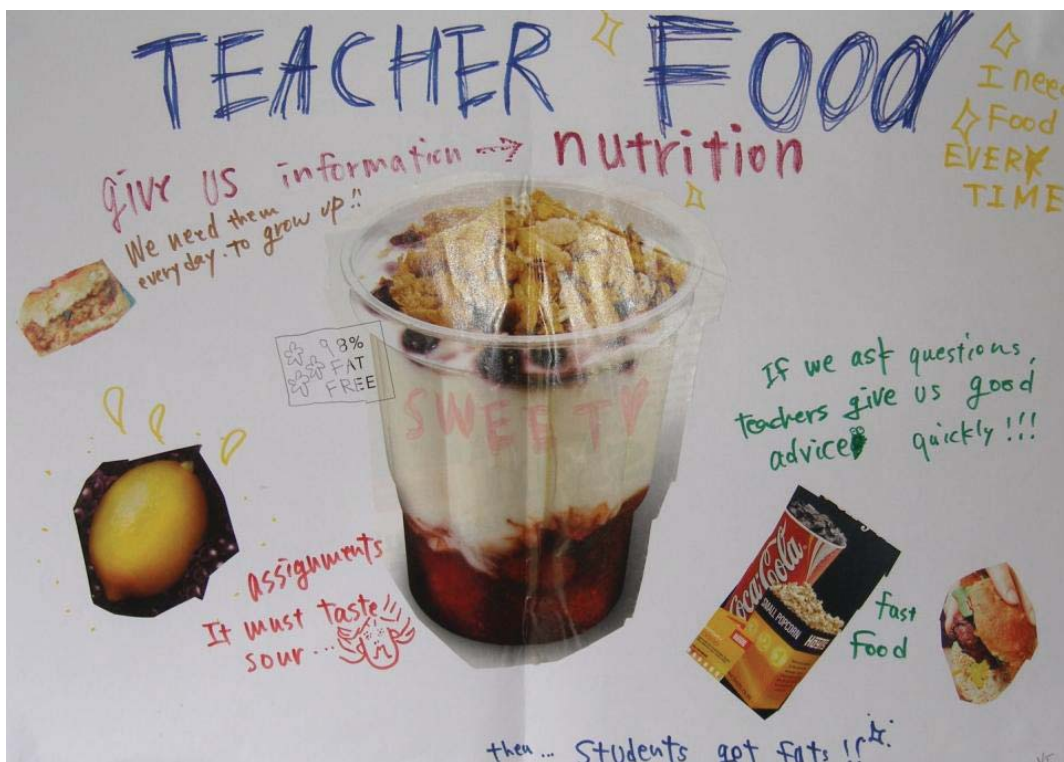 TEACHER FOOD
I need
Food
EVERY
TIME
give us information → nutrition
We need them
everyday. to grow up!!
98%
FAT
FREE
SWEETY
If we ask questions,
teachers give us good
advice quickly!!!
assignments
It must taste
sour...
Coca-Cola
SMALL POPCORN
fast
Food
then... students get fats!!